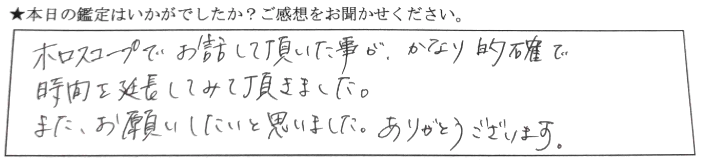 ★本日の鑑定はいかがでしたか？ご感想をお聞かせください。
ホロスコープでお話して頂いた事が、かなり的確で
時間を延長してみて頂きました。
また、お願いしたいと思いました。ありがとうございます。